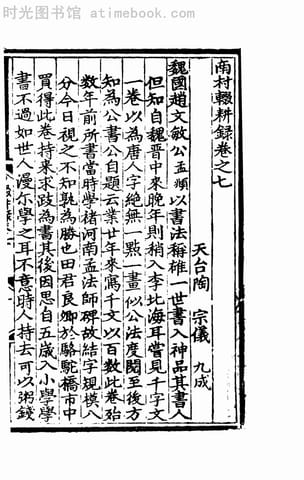 时光图书馆 atimebook.com
南村輟耕錄卷之七
天台陶 宗儀 九成
魏國趙文敏公孟頫以書法稱雄一世書入神品其書人
但知自魏晉中來晚年則稍入李北海耳嘗見千字文
一卷以為唐人字絕無一點一畫似公法度閱至後方
知為公書公自題云業廿年來寫千文以百數此卷殆
數年前所書當時學褚河南孟法師碑故結字規模八
分今日視之不知孰為勝也田君良卿於駱駝橋市中
買得此卷持來求跋為書其後因思自五歲入小學學
書不過如世人漫尔學之耳不意時人持去可以粥錢